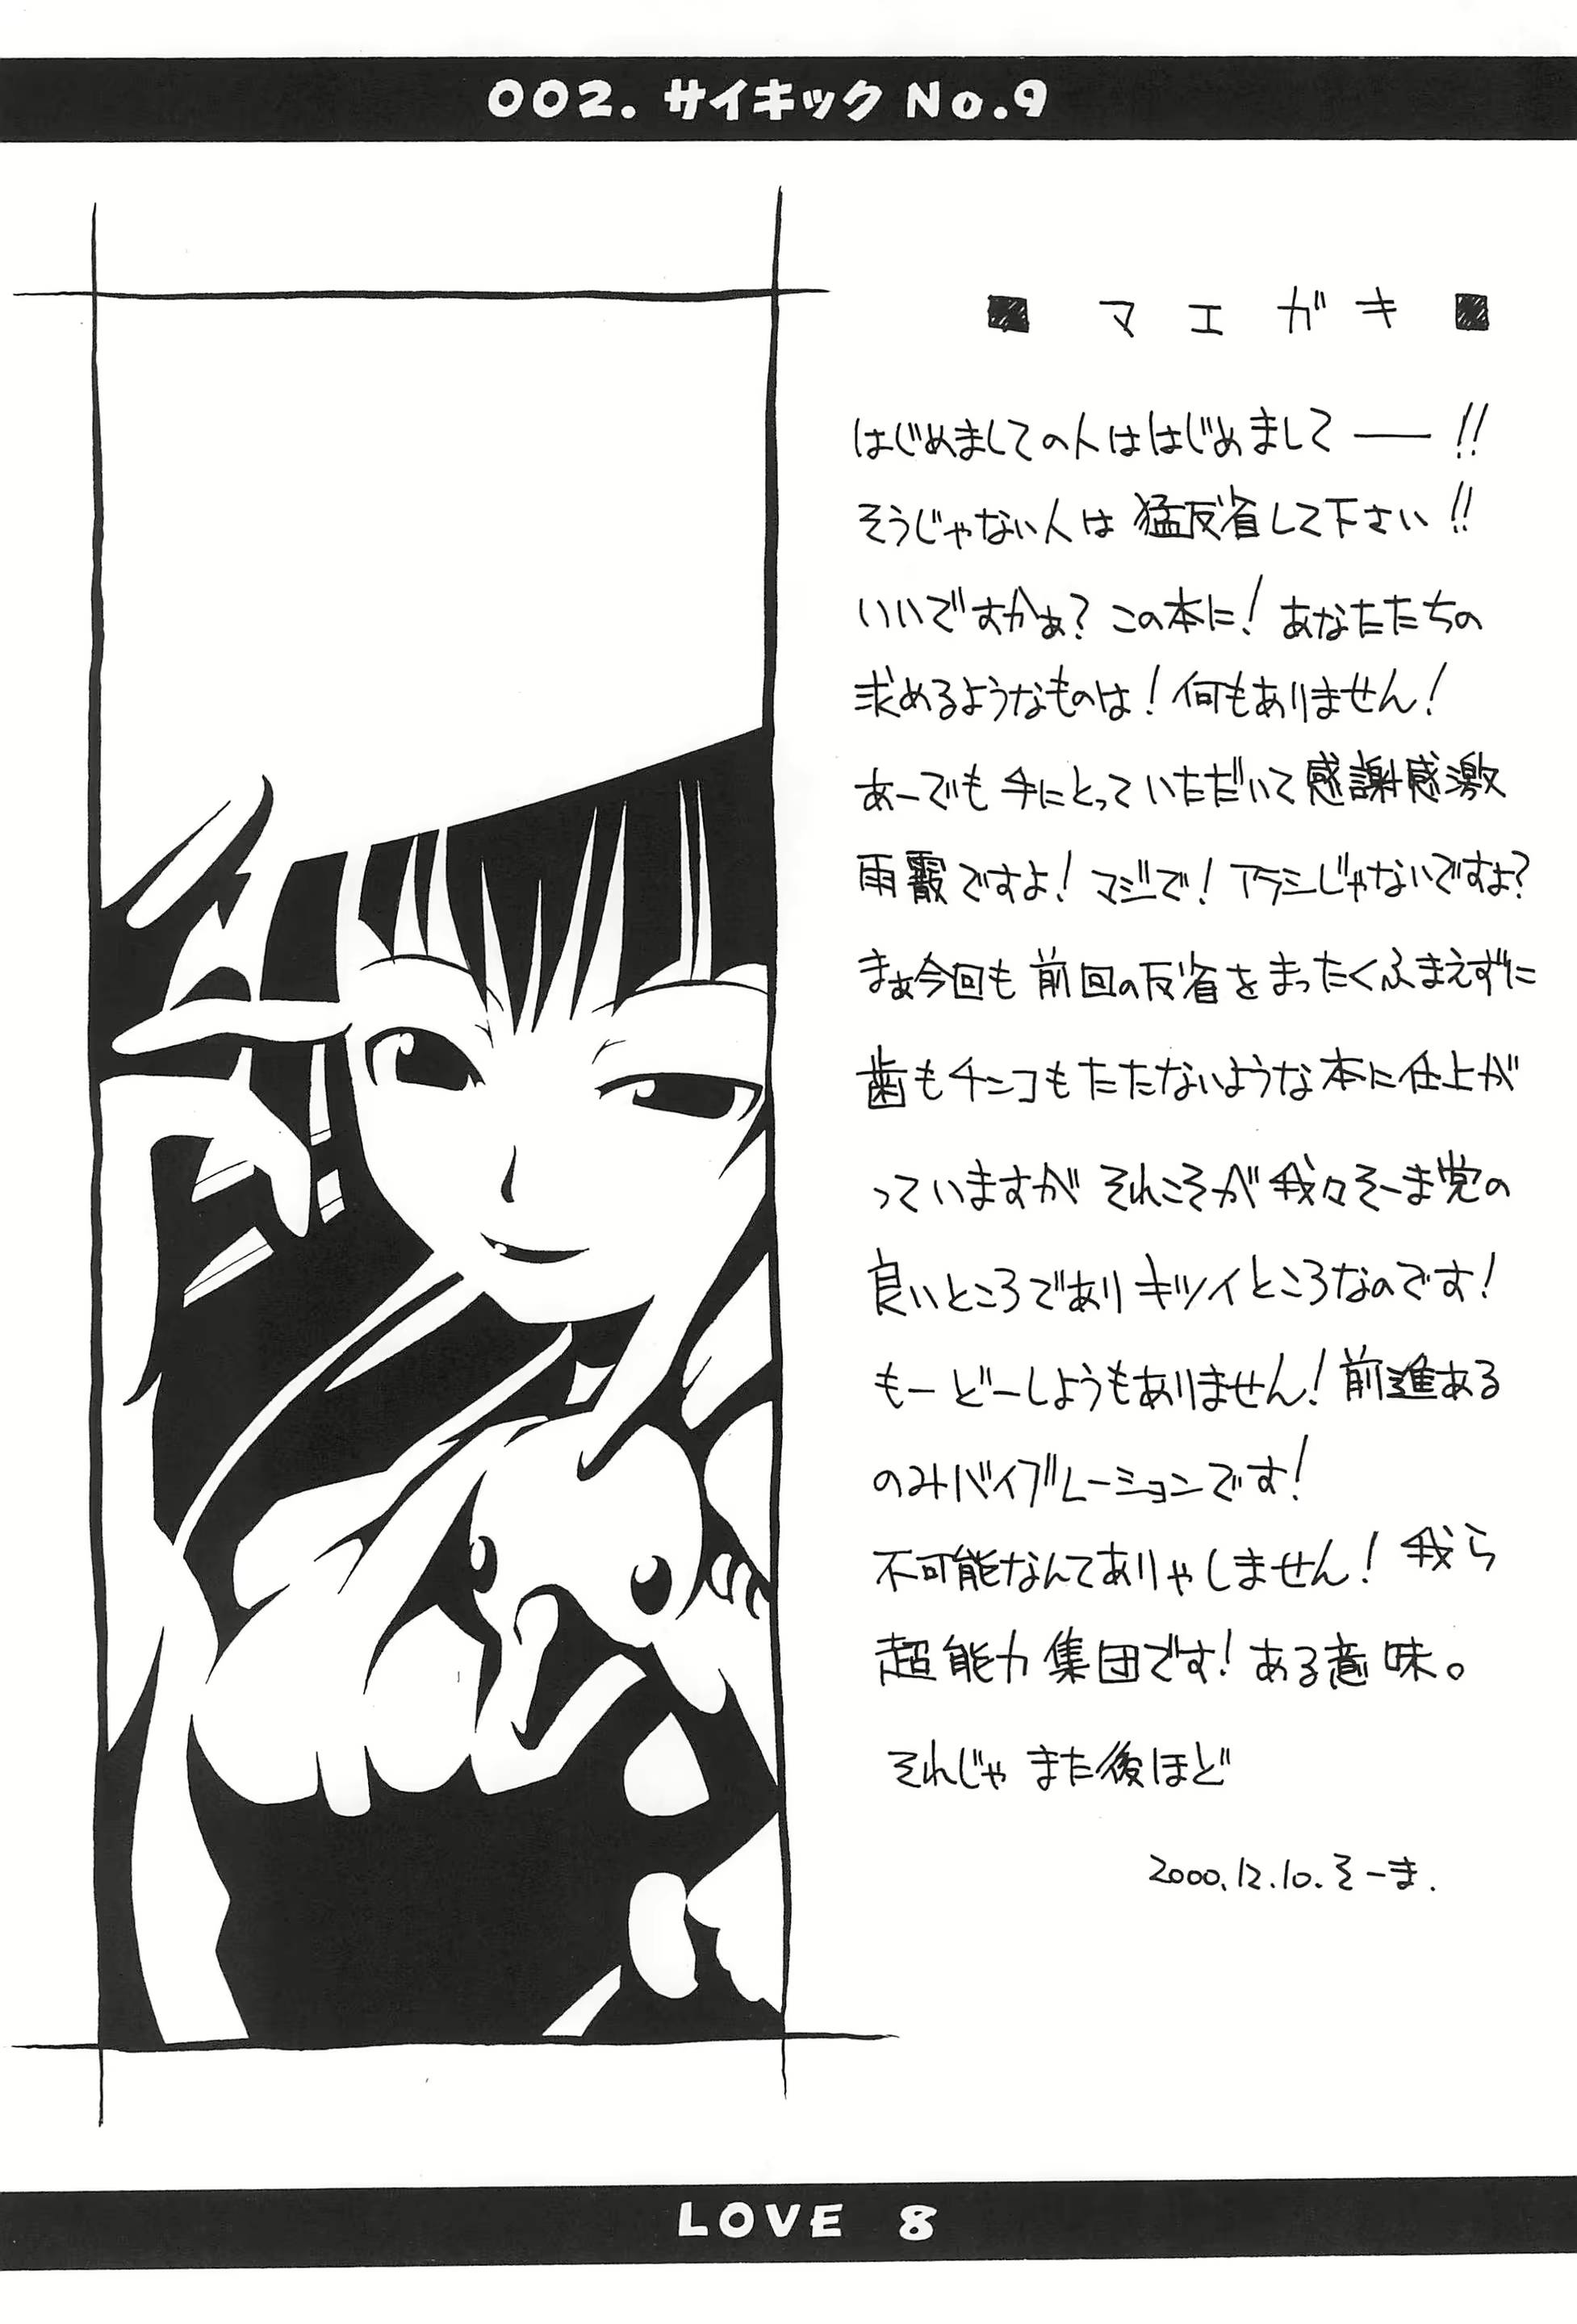 002. サイキック No.9
■ マエガキ ■
はじめましての人ははじめまして──!!
そうじゃない人は猛反省して下さい!!
いいですかぁ?この本に!あなたたちの
求めるようなものは!何もありません!
あーでも手にとっていただいて感謝感激
雨霰ですよ!マジで!アラシじゃないですよ?
まぁ今回も前回の反省をまったくふまえずに
歯もチンコもたたないような本に仕上が
っていますがそれこそが我々そーま党の
良いところでありキツイところなのです!
もーどーしようもありません!前進ある
のみバイブレーションです!
不可能なんてありゃしません!我ら
超能力集団です!ある意味。
それじゃまた後ほど
2000.12.10.そーま.
LOVE 8